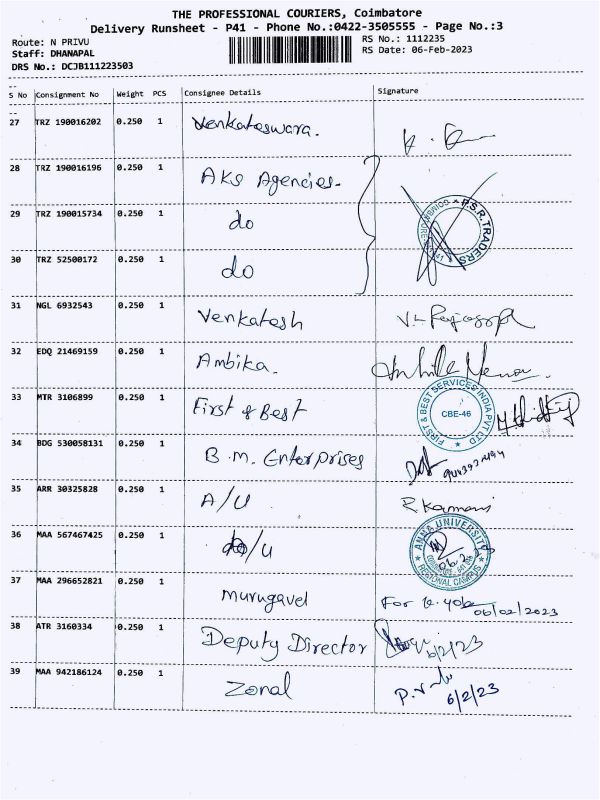 THE PROFESSIONAL COURIERS, Coimbatore
Delivery Runsheet - P41 - Phone No.:0422-3505555 - Page No.:3
Route: N PRIVU RS No.: 1112235
Staff: DHANAPAL RS Date: 06-Feb-2023
DRS No.: DCJB111223503
S No Consignment No Weight PCS Consignee Details Signature
27 TRZ 190016202 0.250 1 Venkateswara.
28 TRZ 190016196 0.250 1 AKS Agencies.
29 TRZ 190015734 0.250 1 do
P.S.R. TRADERS
30 TRZ 52500172 0.250 1 do
31 NGL 6932543 0.250 1 Venkatesh
32 EDQ 21469159 0.250 1 Ambika.
33 MTR 3106899 0.250 1 First & Best
FIRST & BEST SERVICES INDIA PVT LTD
CBE-46
34 BDG 530058131 0.250 1 B.M. Enterprises
35 ARR 30325828 0.250 1 A/U
36 MAA 567467425 0.250 1 /U
ANNA UNIVERSITY
REGIONAL CAMPUS
37 MAA 296652821 0.250 1 Murugavel For 06/02/2023
38 ATR 3160334 0.250 1 Deputy Director 6/2/23
39 MAA 942186124 0.250 1 Zonal 6/2/23